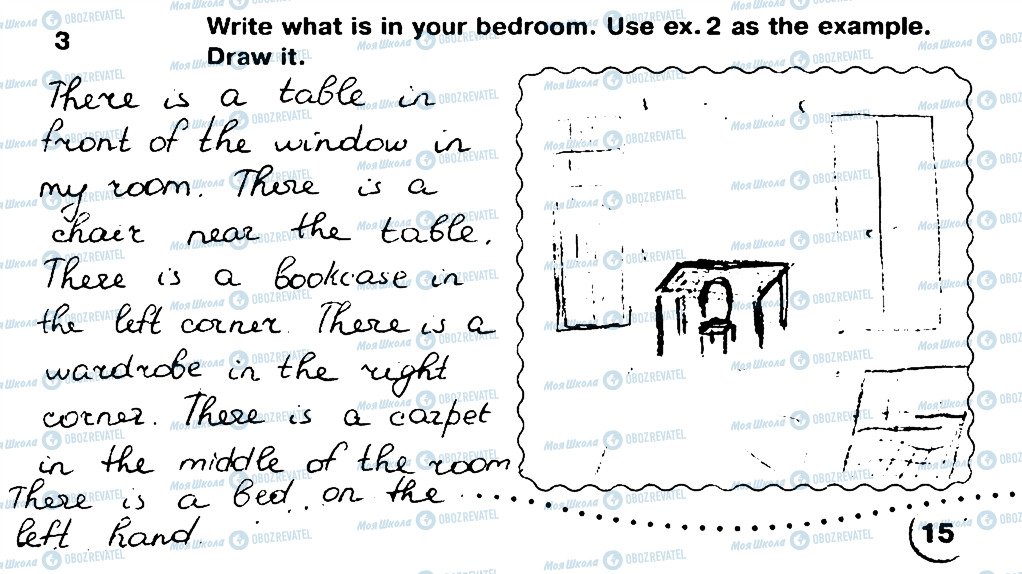 3
Write what is in your bedroom. Use ex. 2 as the example.
Draw it.
There is a table in
front of the window in
my room. There is a
chair near the table.
There is a bookcase in
the left corner. There is a
wardrobe in the right
corner. There is a carpet
in the middle of the room
There is a bed on the
left hand.
15
Моя Школа OBOZREVATEL